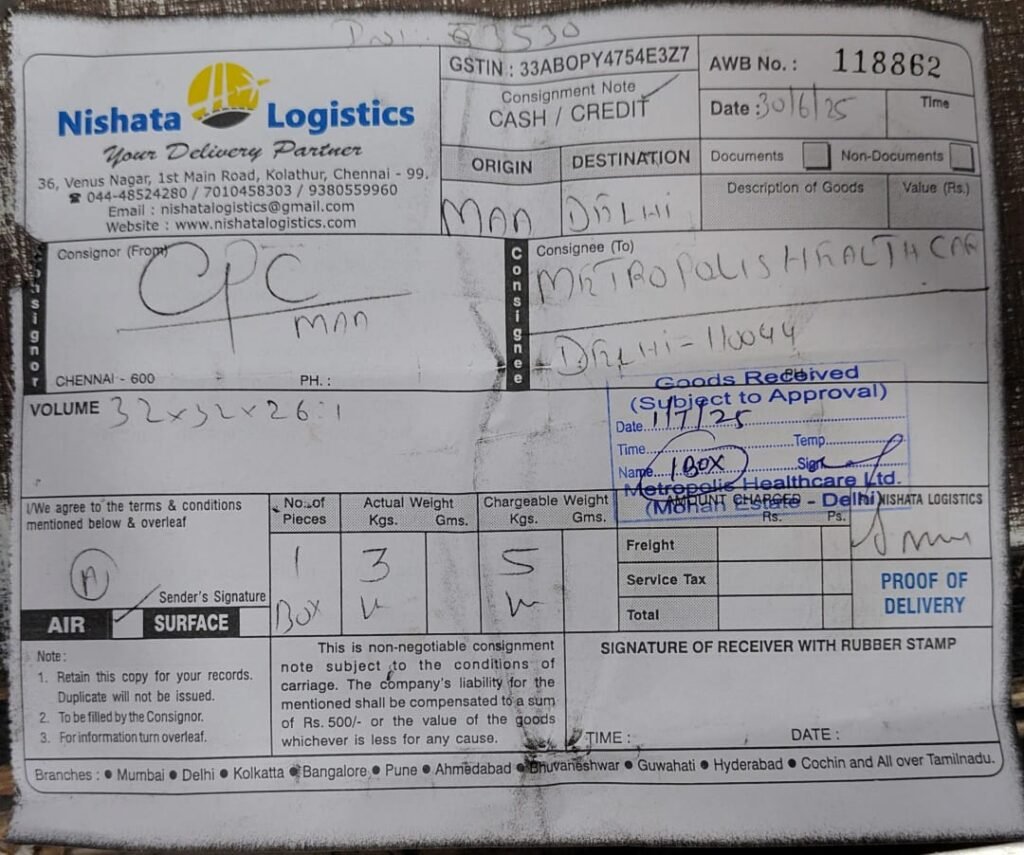 Nishata Logistics
Your Delivery Partner
36, Venus Nagar, 1st Main Road, Kolathur, Chennai - 99.
☎ 044-48524280 / 7010458303 / 9380559960
Email : nishatalogistics@gmail.com
Website : www.nishatalogistics.com
GSTIN : 33ABOPY4754E3Z7
Consignment Note
CASH / CREDIT
AWB No. : 118862
Date : 30/6/25 Time
ORIGIN DESTINATION
MAA DELHI
Documents Non-Documents
Description of Goods Value (Rs.)
Consignor
Consignor (From)
CPC
MAA
CHENNAI - 600 PH. :
Consignee
Consignee (To)
METROPOLIS HEALTH CARE
DELHI - 110044
VOLUME 32x32x26:1
Goods Received
(Subject to Approval)
Date 1/7/25
Time Temp
Name 1 BOX Sign
Metropolis Healthcare Ltd.
(Mohan Estate - Delhi)
I/We agree to the terms & conditions
mentioned below & overleaf
A
Sender's Signature
AIR SURFACE
No. of Pieces Actual Weight Kgs. Gms. Chargeable Weight Kgs. Gms.
1 3 5
BOX
AMOUNT CHARGED Rs. Ps.
Freight
Service Tax
Total
NISHATA LOGISTICS
PROOF OF
DELIVERY
Note :
1. Retain this copy for your records.
Duplicate will not be issued.
2. To be filled by the Consignor.
3. For information turn overleaf.
This is non-negotiable consignment
note subject to the conditions of
carriage. The company's liability for the
mentioned shall be compensated to a sum
of Rs. 500/- or the value of the goods
whichever is less for any cause.
SIGNATURE OF RECEIVER WITH RUBBER STAMP
TIME : DATE :
Branches : ● Mumbai ● Delhi ● Kolkatta ● Bangalore ● Pune ● Ahmedabad ● Bhuvaneshwar ● Guwahati ● Hyderabad ● Cochin and All over Tamilnadu.